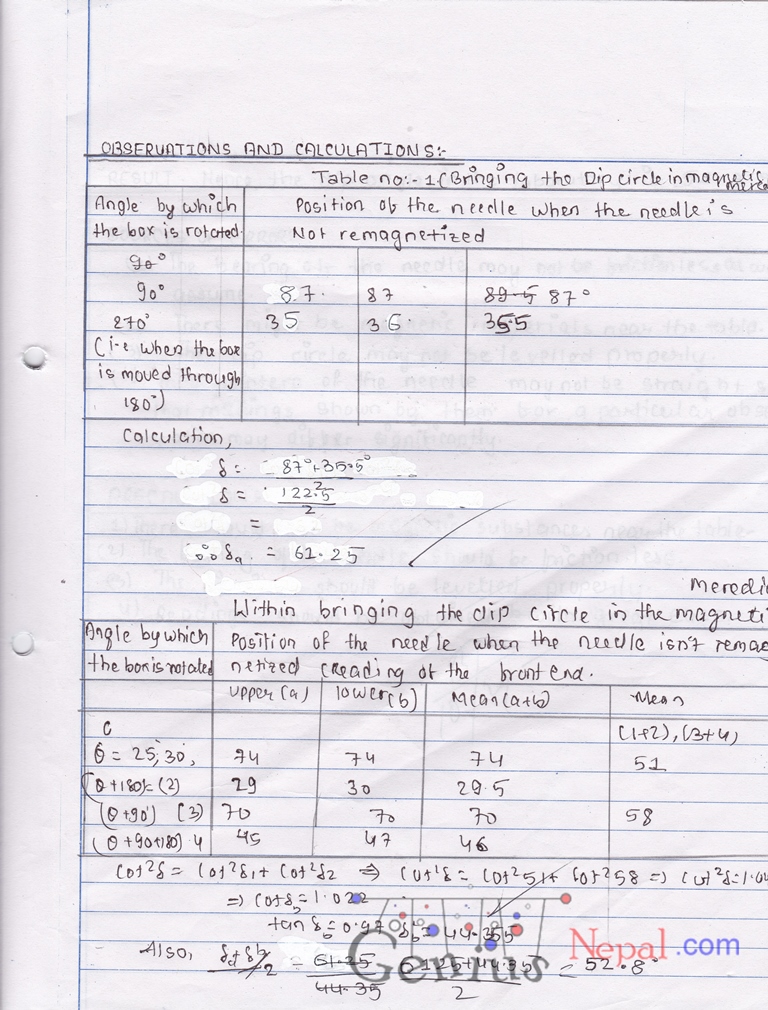 OBSERVATIONS AND CALCULATIONS:-
Table no:- 1 (Bringing the Dip circle in magnetic
Angle by which the box is rotated. Position of the needle when the needle is Not remagnetized
90°
90° 87 87 89.5 87°
270° 35 36 35.5
(i.e when the box
is moved through
180°)
Calculation,
δ = 87°+35.5°
2
δ = 122.5
2
=
∴ δa = 61.25
Meredi
Within bringing the dip circle in the magneti
Angle by which the box is rotated Position of the needle when the needle isn't remag
netized (reading of the front end.
upper(a) lower(b) Mean(a+b) Mean
(1+2), (3+4)
θ = 25, 30, 74 74 74 51
(θ+180)=(2) 29 30 29.5
(θ+90°) (3) 70 70 70 58
(θ+90+180) 4 45 47 46
Cot²δ = Cot²δ1 + Cot²δ2 ⇒ Cot²δ = Cot²51 + Cot²58 ⇒ Cot²δ=1.04
⇒ Cotδb = 1.022
tan δb = 0.97 δb = 44.355
Also, δa+δb/2 = 61.25 61.25+44.35 = 52.8°
44.35 2
Genius Nepal.com